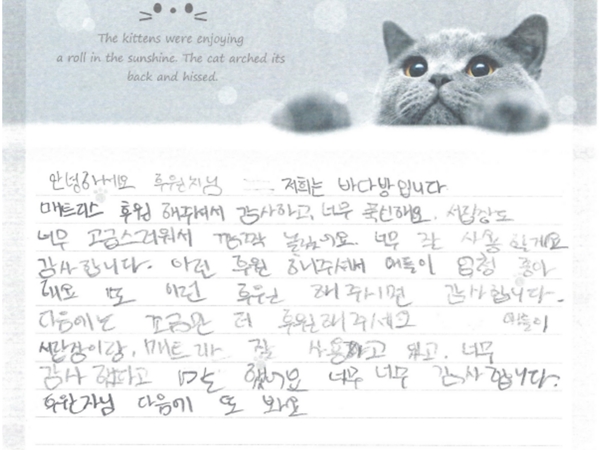 The kittens were enjoying
a roll in the sunshine. The cat arched its
back and hissed.
안녕하세요 후원자님 저희는 바다방입니다
매트리스 후원 해주셔서 감사하고, 너무 푹신해요. 서랍장도
너무 고급스러워서 깜짝 놀랐어요. 너무 잘 사용 할게요
감사합니다. 이런 후원 해주셔서 애들이 엄청 좋아
해요 또 이런 후원 해주시면 감사합니다.
다음에는 조금만 더 후원해주세요 애들이
서랍장이랑, 매트 잘 사용하고 있고, 너무
감사하다고 말 했어요 너무 너무 감사합니다.
후원자님 다음에 또 봐요